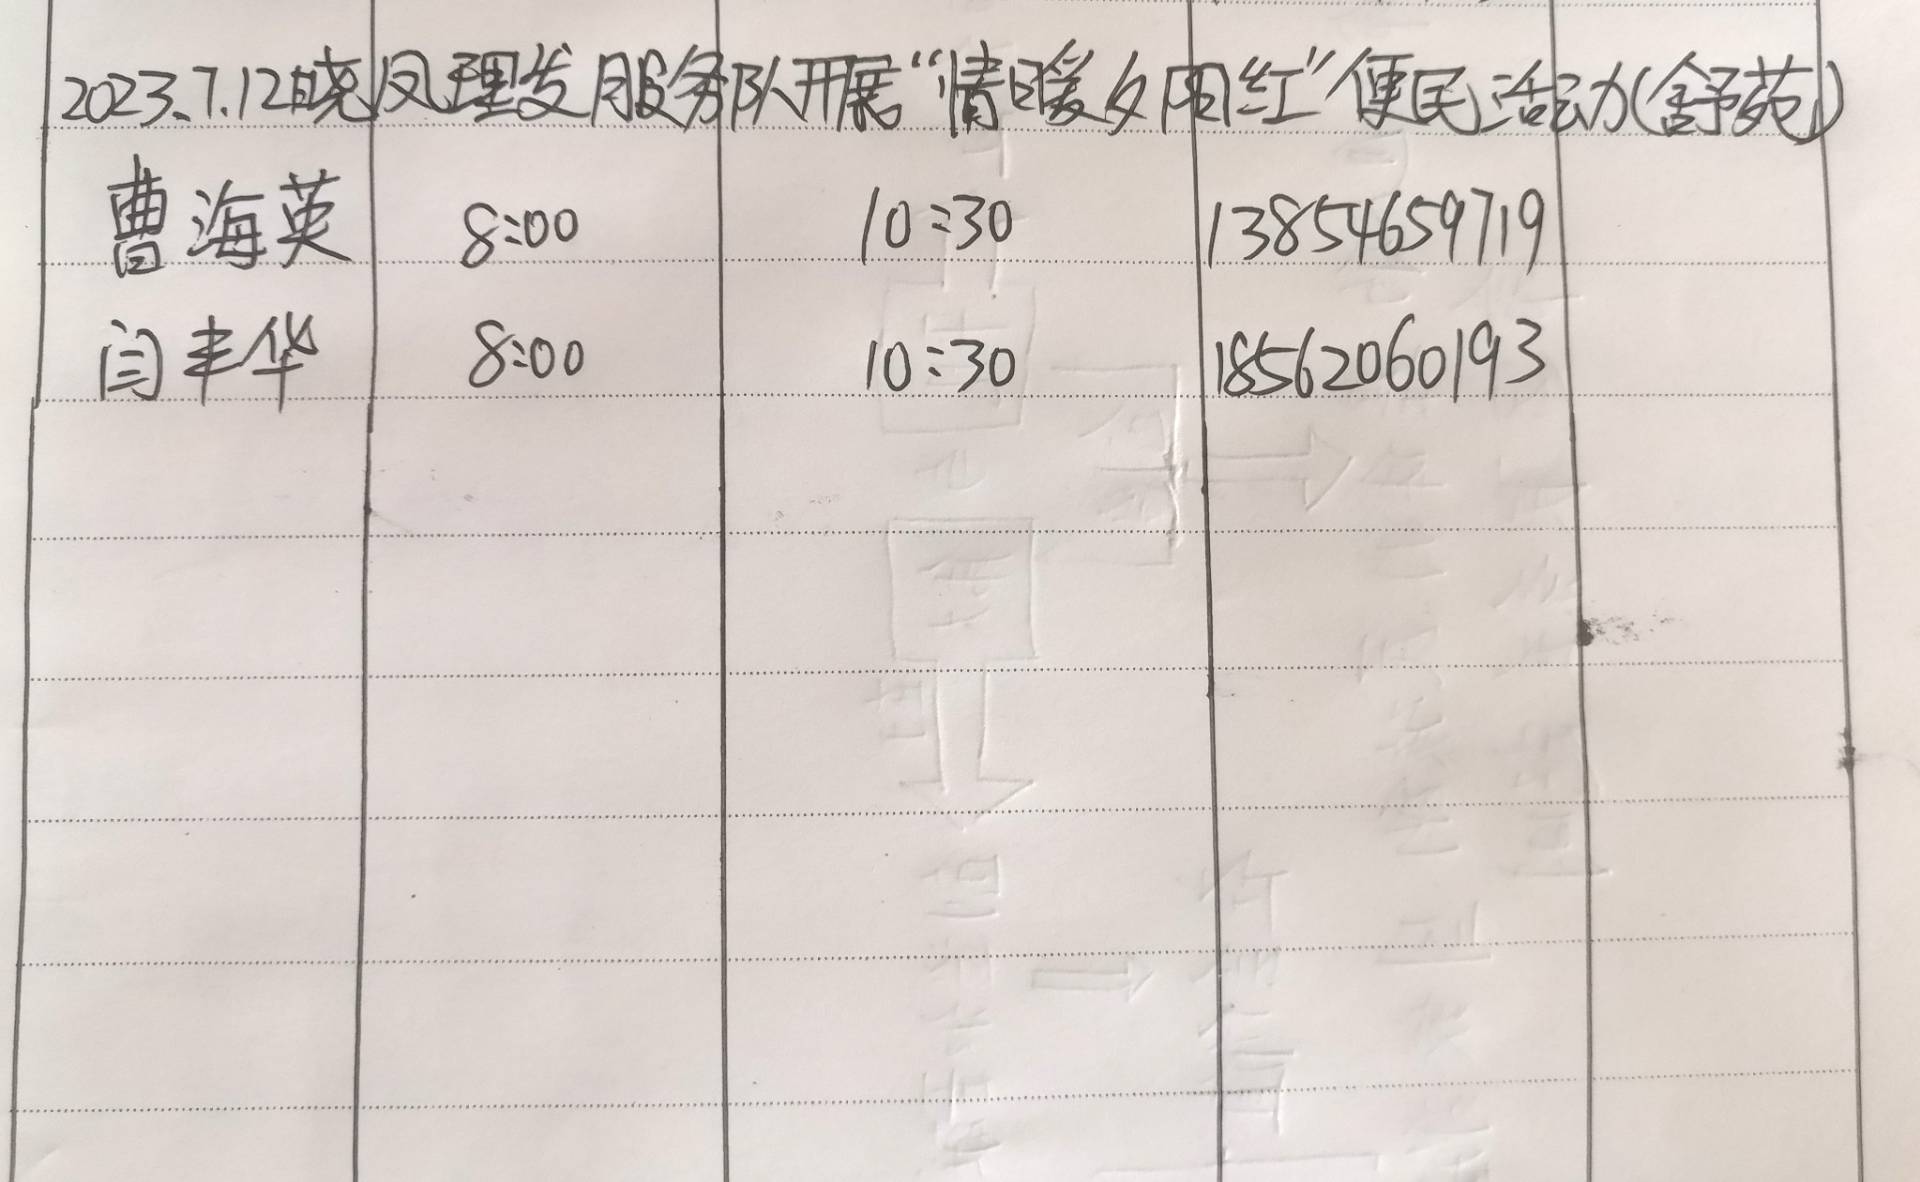 2023.7.12晓凤理发服务队开展“情暖夕阳红”便民活动(舒苑)
曹海英 8:00 10:30 13854659719
闫丰华 8:00 10:30 18562060193